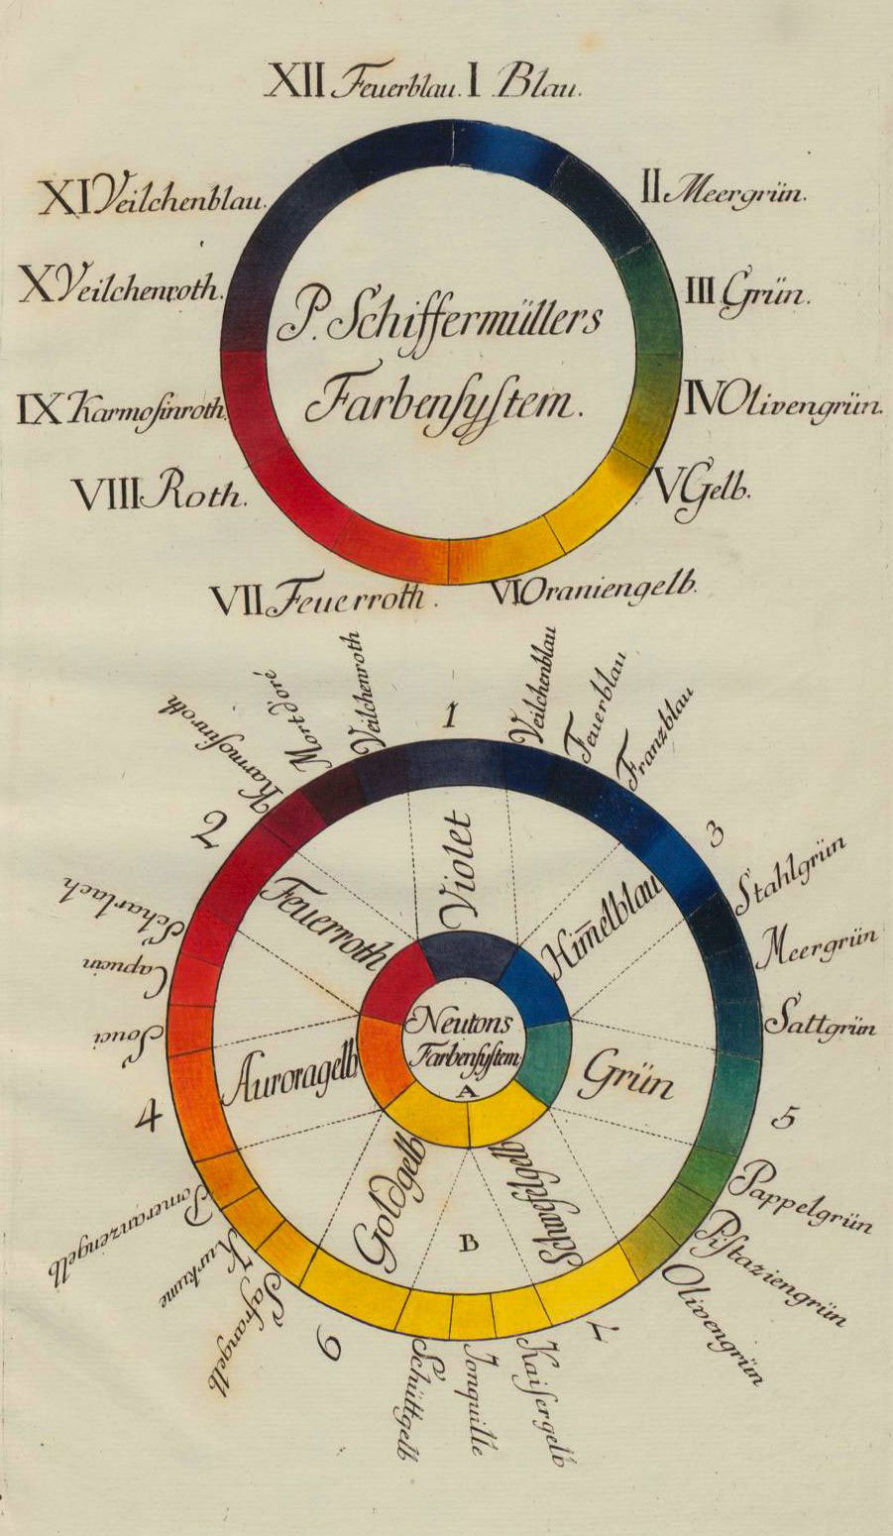 XII Feuerblau. I Blau.
XI Veilchenblau.
II Meergrün.
X Veilchenroth.
III Grün.
P. Schiffermüllers
Farbenſyſtem.
IX Karmoſinroth.
IV Olivengrün.
VIII Roth.
V Gelb.
VII Feuerroth.
VI Oraniengelb.
1
Veilchenblau
Feuerblau
Franzblau
3
Stahlgrün
Meergrün
Sattgrün
5
Pappelgrün
Piſtaziengrün
Olivengrün
7
Kaiſergelb
Jonquille
Schüttgelb
6
Safrangelb
Kurkume
Pomeranzengelb
4
Souci
Capucin
Scharlach
2
Karmoſinroth
Mort d'oré
Veilchenroth
Violet
Him̄elblau
Grün
Schwefelgelb
Goldgelb
Auroragelb
Feuerroth
Neutons
Farbenſyſtem
A
B